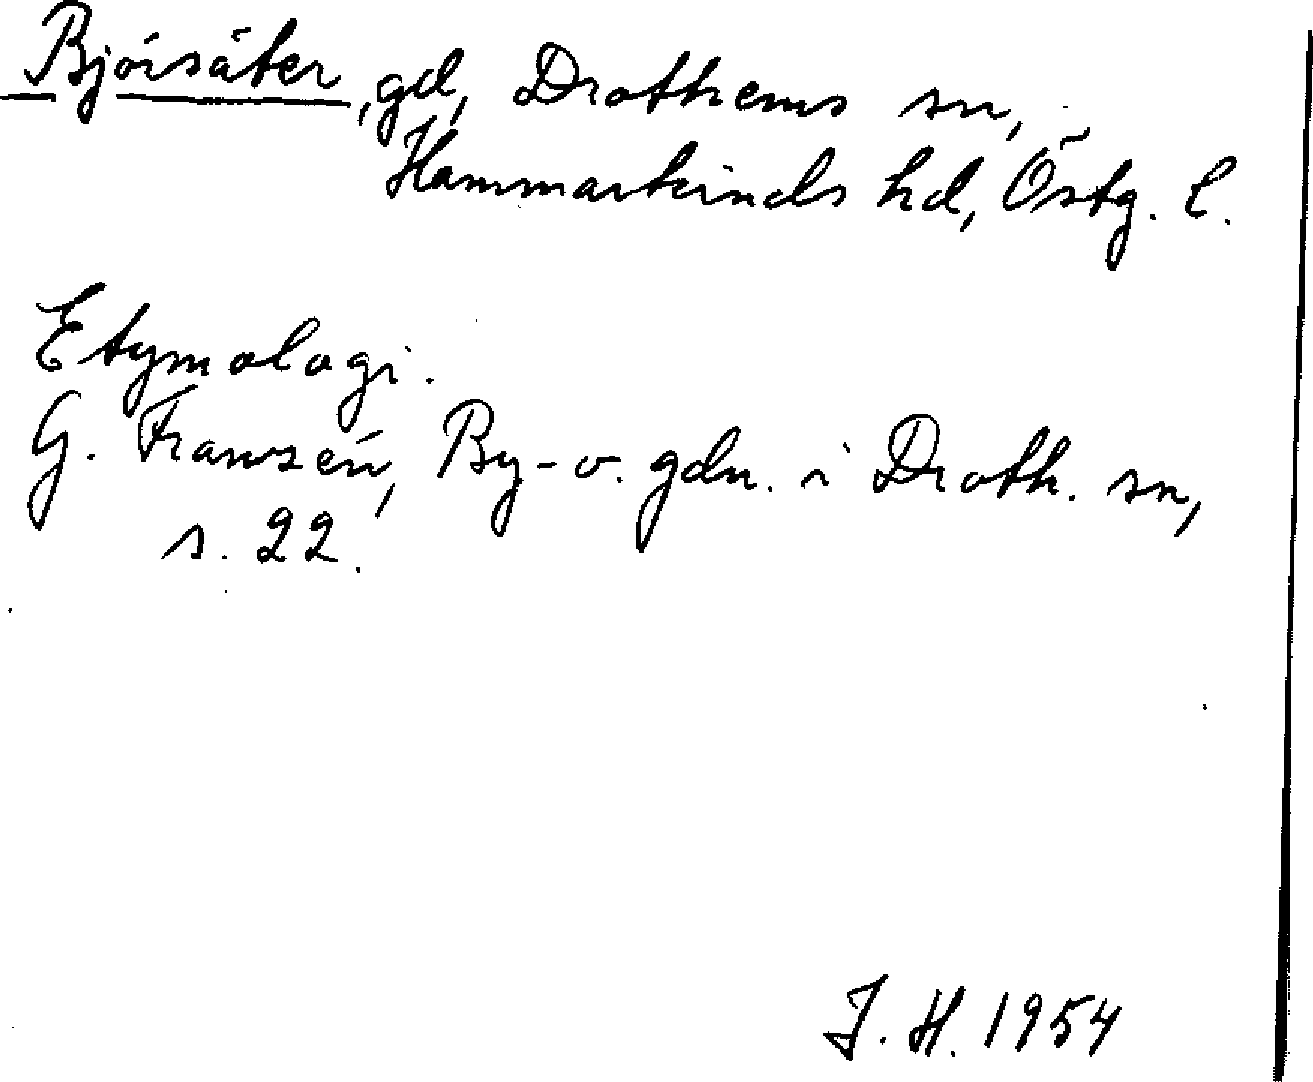 Björsäter, gd, Drothems sn,
Hammarkinds hd, Östg. l.
Etymologi.
G. Franzén, By- o. gdn. i Droth. sn,
s. 22.
J. H. 1954